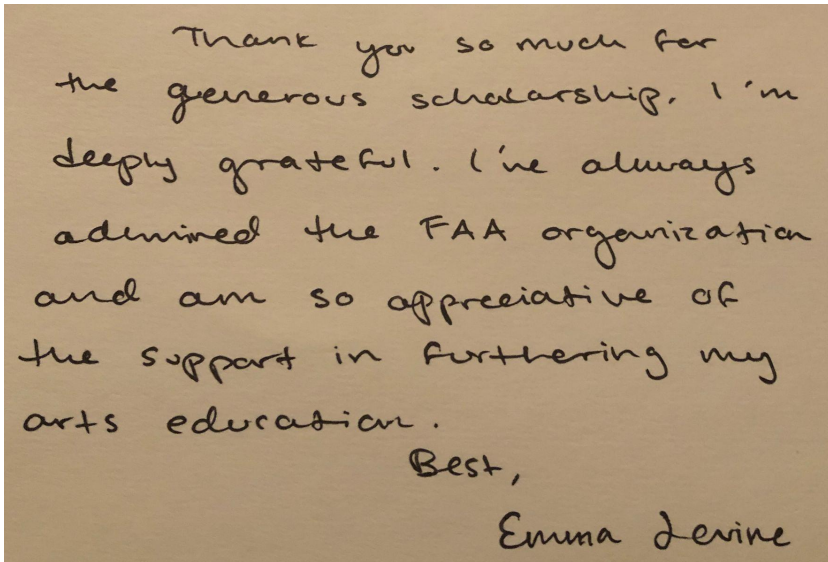 Thank you so much for
the generous scholarship. I'm
deeply grateful. I've always
admired the FAA organization
and am so appreciative of
the support in furthering my
arts education.
Best,
Emma Levine